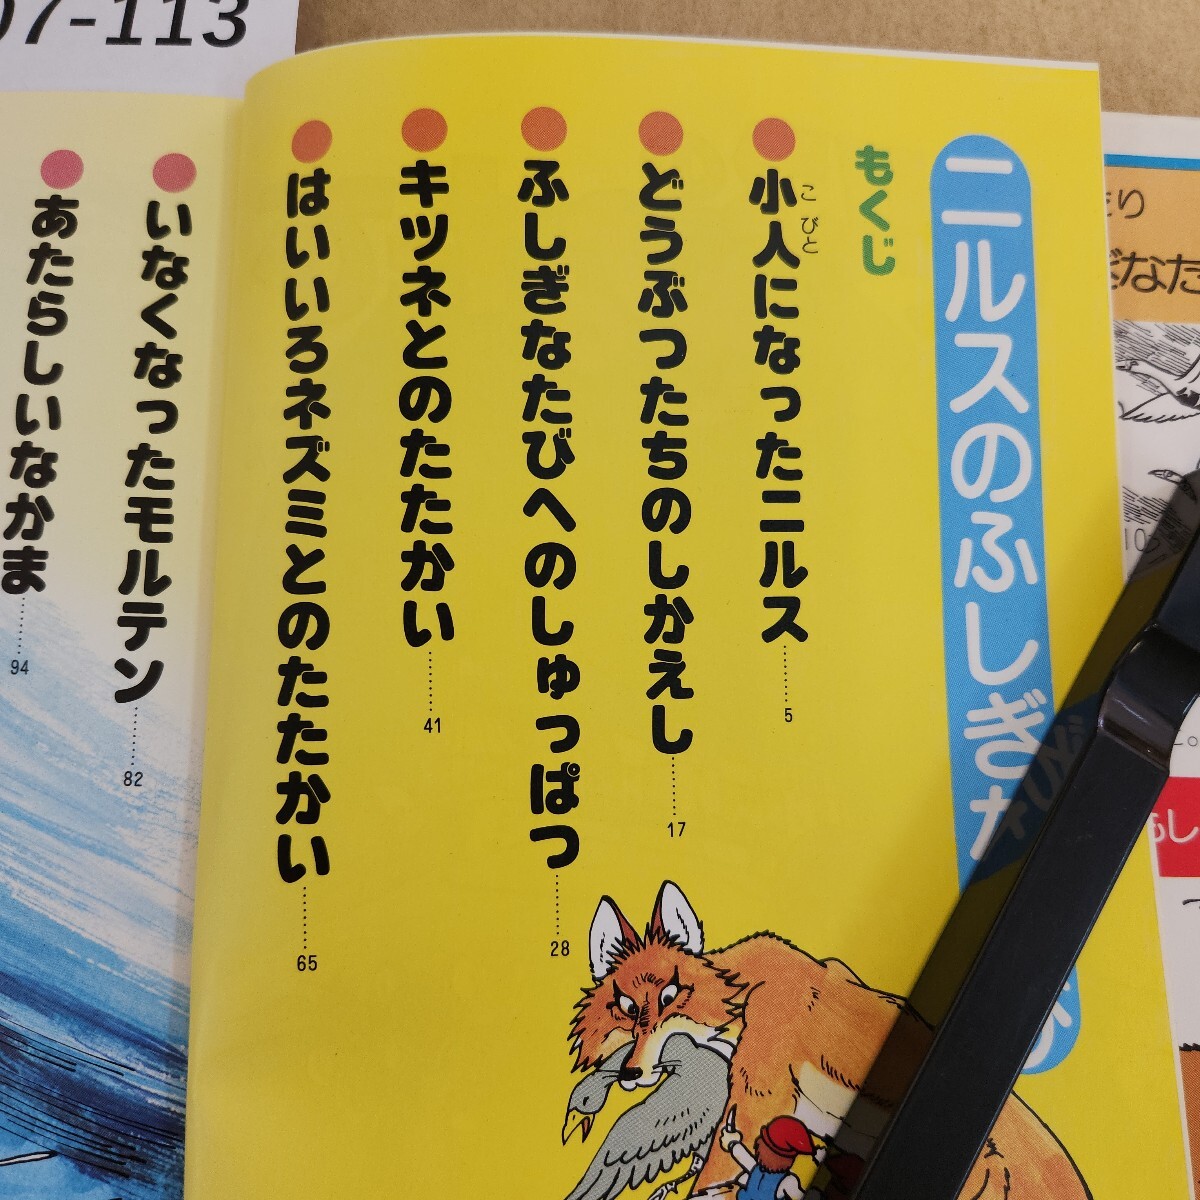 07-113
ニルスのふしぎな
もくじ
小人になったニルス 5
こびと
どうぶつたちのしかえし 17
ふしぎなたびへのしゅっぱつ 28
キツネとのたたかい 41
はいいろネズミとのたたかい 65
いなくなったモルテン 82
あたらしいなかま 94